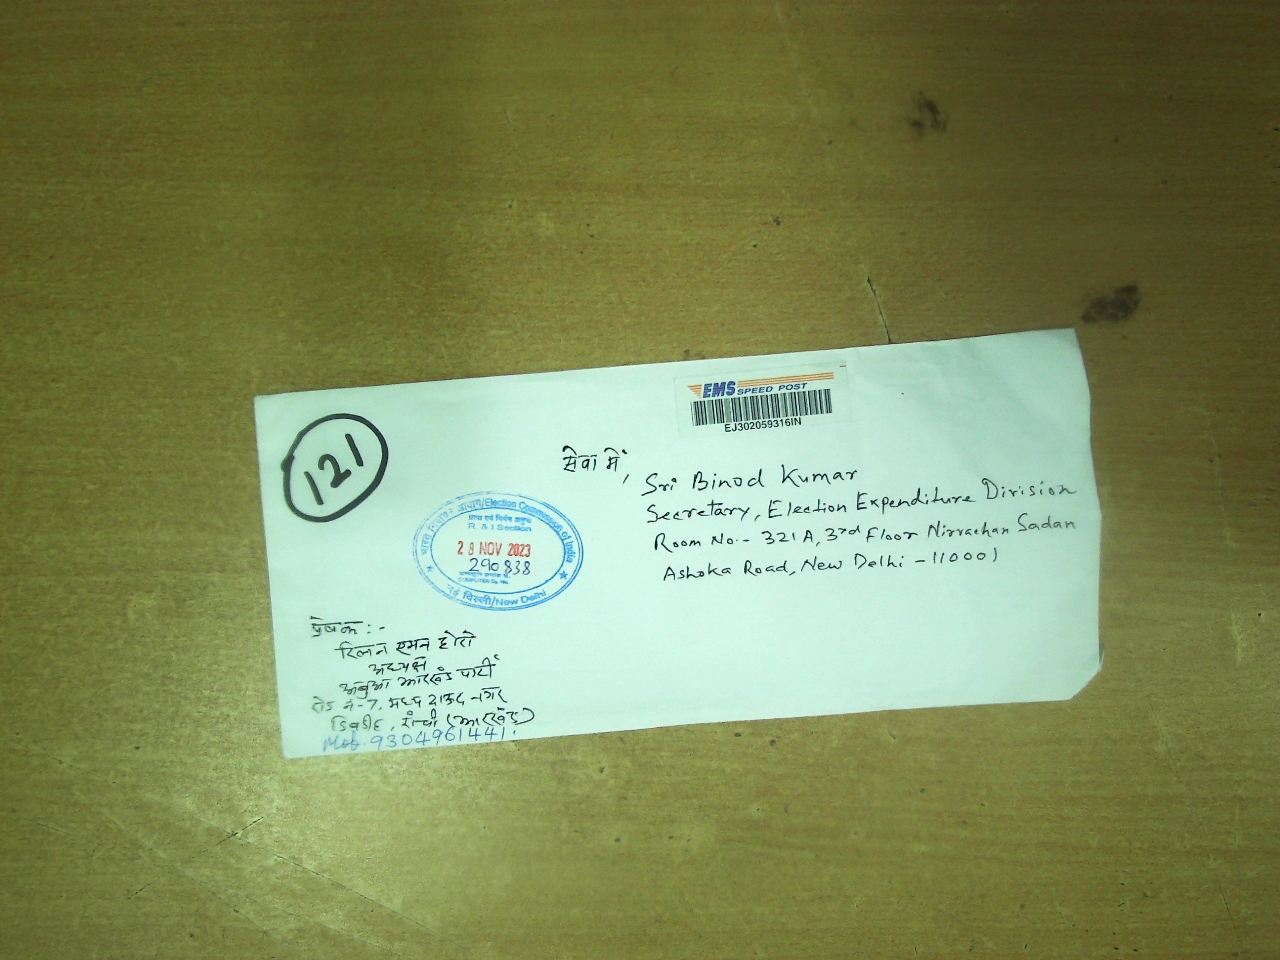 121
EMS SPEED POST
EJ302059316IN
सेवा में,
Sri Binod Kumar
Secretary, Election Expenditure Division
Room No:- 321A, 3rd Floor Nirvachan Sadan
Ashoka Road, New Delhi - 110001
भारत निर्वाचन आयोग/Election Commission of India
R & I Section
28 NOV 2023
290838
COMPUTER Dy. No.
नई दिल्ली/New Delhi
प्रेषक :-
रिलन एमन होरो
अध्यक्ष
अबुआ झारखंड पार्टी
रोड नं-7, मध्य
डिबडीह, राँची (झारखंड)
Mob. 9304961441.